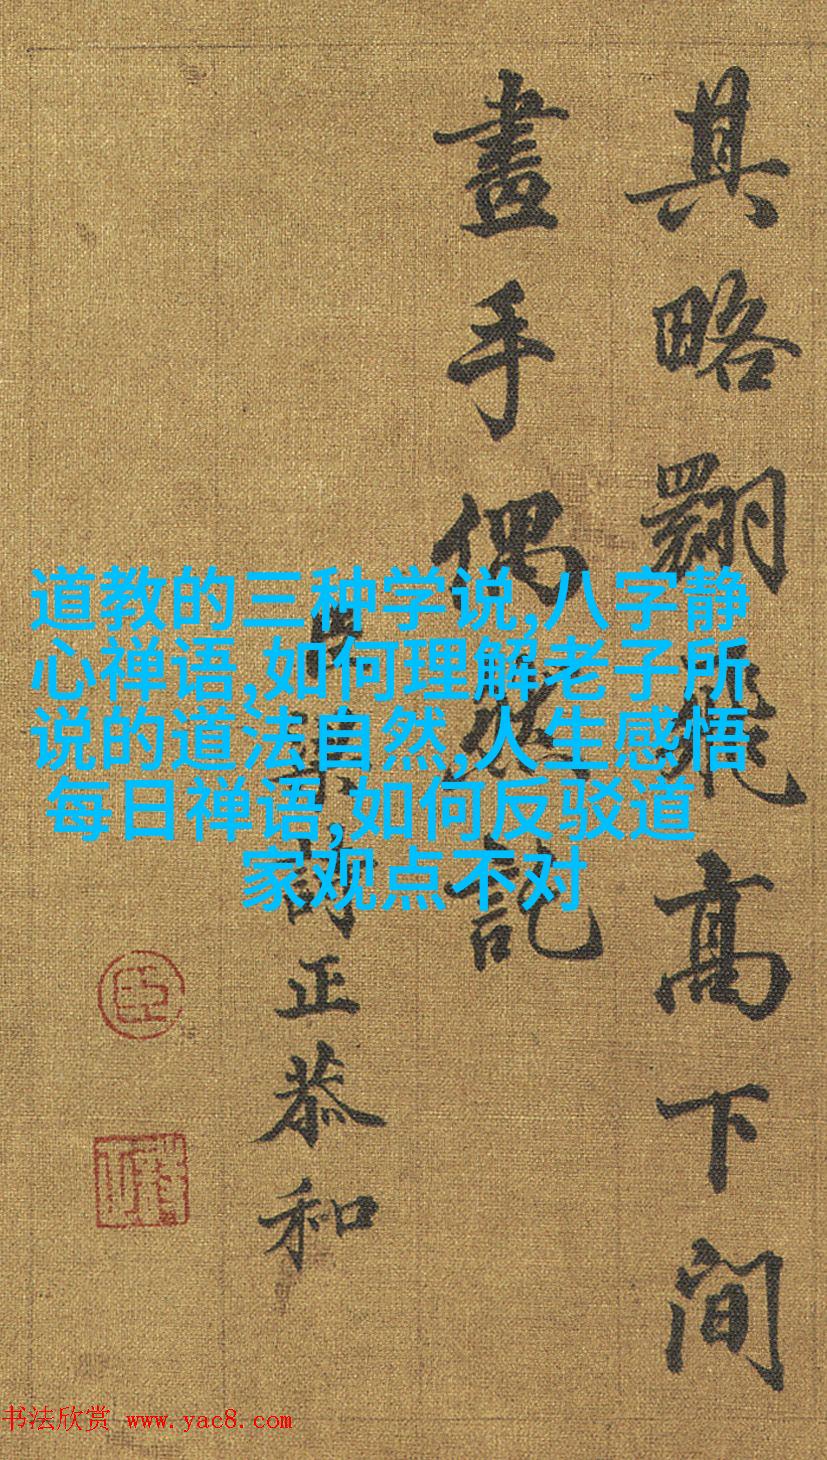 其略翾飛高下間
畫手偶然記
臣梁詩正恭和
臣
道教的三种学说,八字静
心禅语,如何理解老子所
说的道法自然,人生感悟
每日禅语,如何反驳道
家观点不对
书法欣赏 www.yac8.com